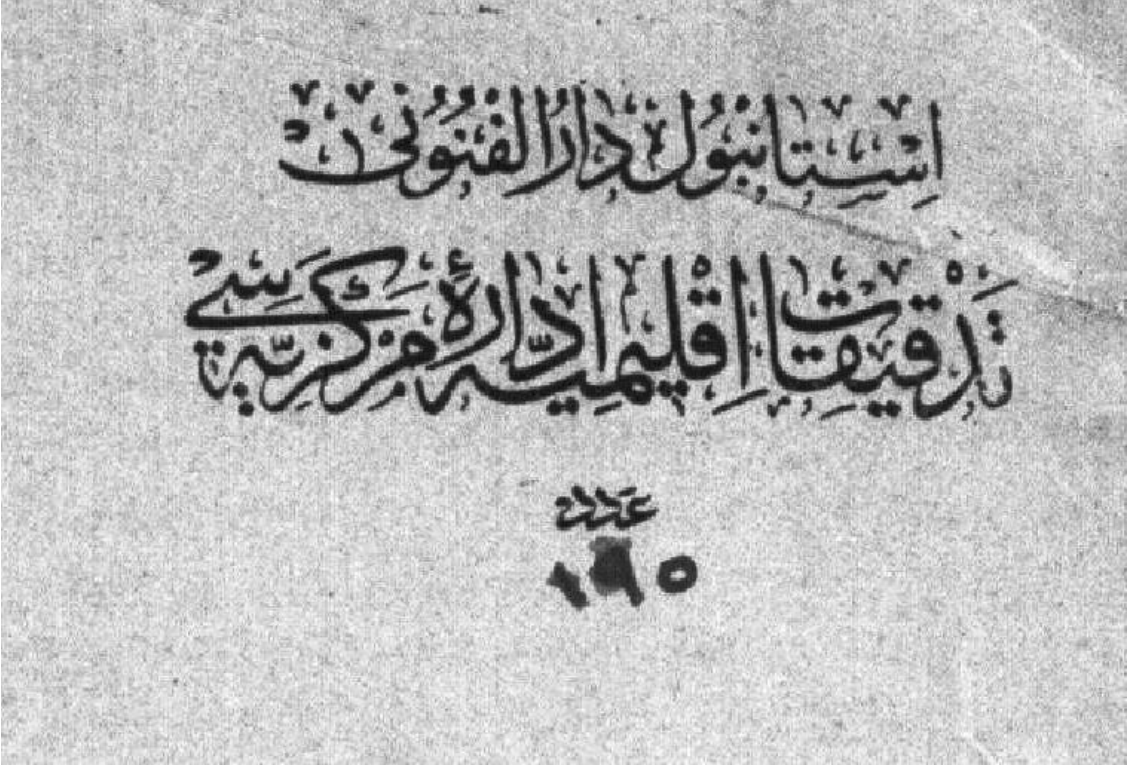 استانبول دار الفنونی
تدقیقات اقلیمیه ادارهٔ مرکزیه سی
عدد